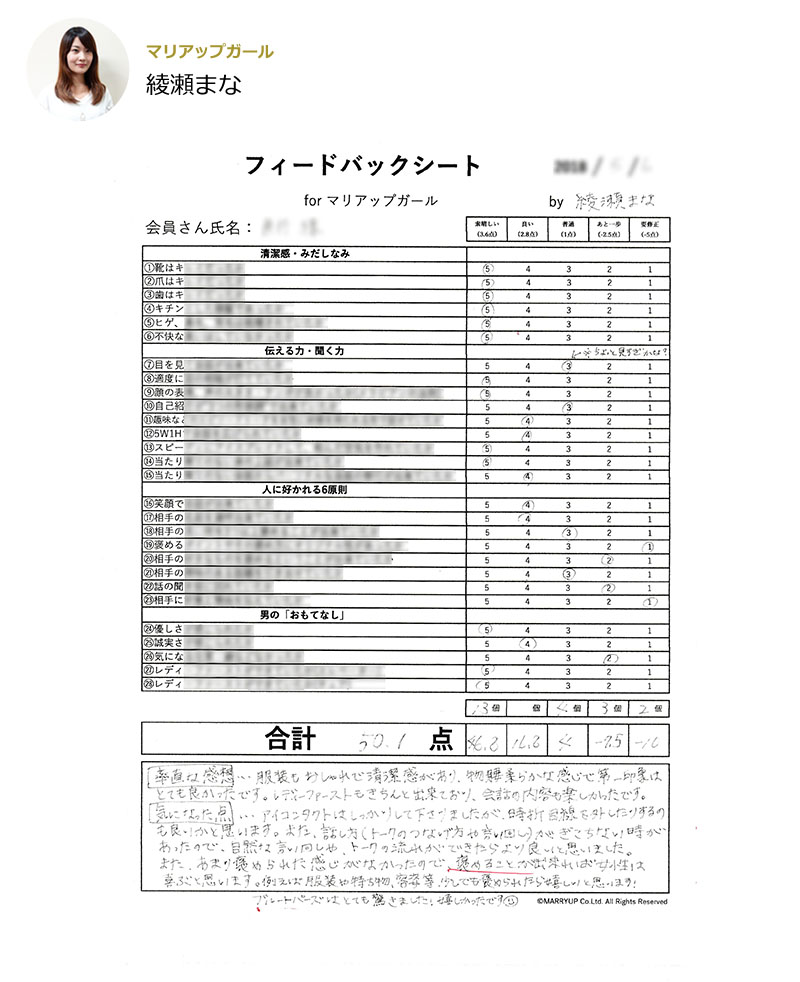 マリアップガール
綾瀬まな
フィードバックシート 2018 /
for マリアップガール by 綾瀬まな
会員さん氏名：
素晴しい (3.6点) 良い (2.8点) 普通 (1点) あと一歩 (-2.5点) 要修正 (-5点)
清潔感・みだしなみ
①靴はキ 5 4 3 2 1
②爪はキ 5 4 3 2 1
③歯はキ 5 4 3 2 1
④キチン 5 4 3 2 1
⑤ヒゲ、 5 4 3 2 1
⑥不快な 5 4 3 2 1
伝える力・聞く力 ちょっと見すぎかな？
⑦目を見 5 4 3 2 1
⑧適度に 5 4 3 2 1
⑨顔の表 5 4 3 2 1
⑩自己紹 5 4 3 2 1
⑪趣味な 5 4 3 2 1
⑫5W1H 5 4 3 2 1
⑬スピー 5 4 3 2 1
⑭当たり 5 4 3 2 1
⑮当たり 5 4 3 2 1
人に好かれる6原則
⑯笑顔で 5 4 3 2 1
⑰相手の 5 4 3 2 1
⑱相手の 5 4 3 2 1
⑲褒める 5 4 3 2 1
⑳相手の 5 4 3 2 1
㉑相手の 5 4 3 2 1
㉒話の聞 5 4 3 2 1
㉓相手に 5 4 3 2 1
男の「おもてなし」
㉔優しさ 5 4 3 2 1
㉕誠実さ 5 4 3 2 1
㉖気にな 5 4 3 2 1
㉗レディ 5 4 3 2 1
㉘レディ 5 4 3 2 1
13 個 個 4 個 3 個 2 個
合計 50.1 点 46.8 4 -7.5 -10
率直な感想… 服装もおしゃれで清潔感があり、物腰柔らかな感じで第一印象は
とても良かったです。レディーファーストもきちんと出来ており、会話の内容も楽しかったです。
気になった点… アイコンタクトはしっかりして下さりましたが、時折目線を外したりするの
も良いかと思います。また、話し方(トークのつなげ方や言い回し)がぎこちない時が
あったので、自然な言い回しや、トークの流れができたらより良いと思いました。
また、あまり褒められた感じがなかったので、褒めることが出来れば女性は
喜ぶと思います。例えば服装や持ち物、容姿等、少しでも褒められたら嬉しいと思います!
はとても驚きましたし嬉しかったです
©MARRYUP Co.Ltd. All Rights Reserved